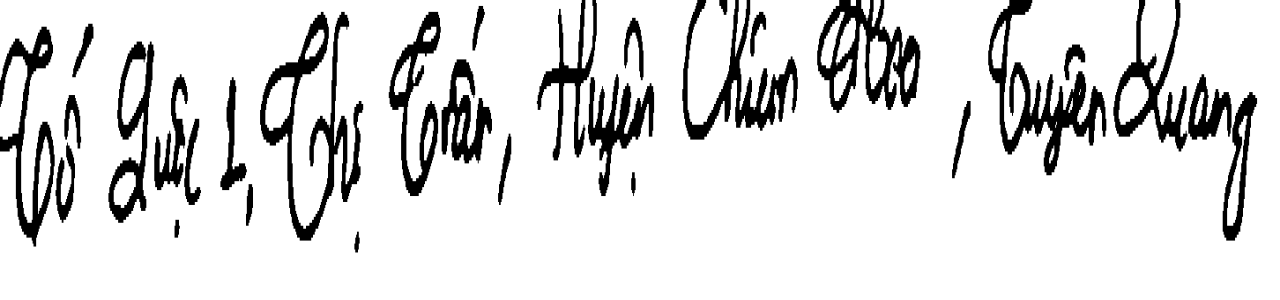 Tổ Quốc 1, Thị Trấn, Huyện Chiêm Hóa, Tuyên Quang